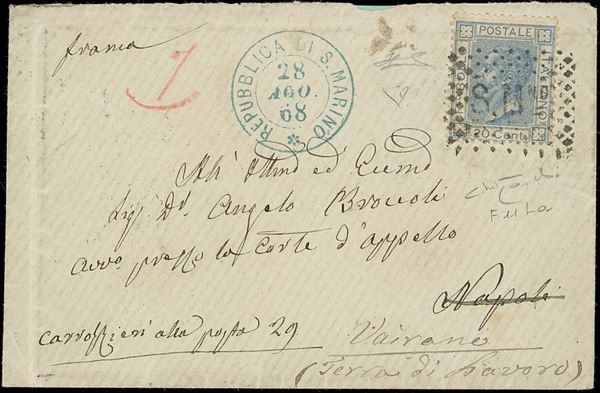 franca
1
REPUBBLICA DI S. MARINO
28
AGO.
68
POSTALE
ITALIANO
20 Cent
All' Ittmo ed Ecc
Sig. Dr. Angelo Broccoli
Avvo presso la Corte d'appello
Napoli
Carrozzieri alla posta 29
Vairano
(Terra di Lavoro)